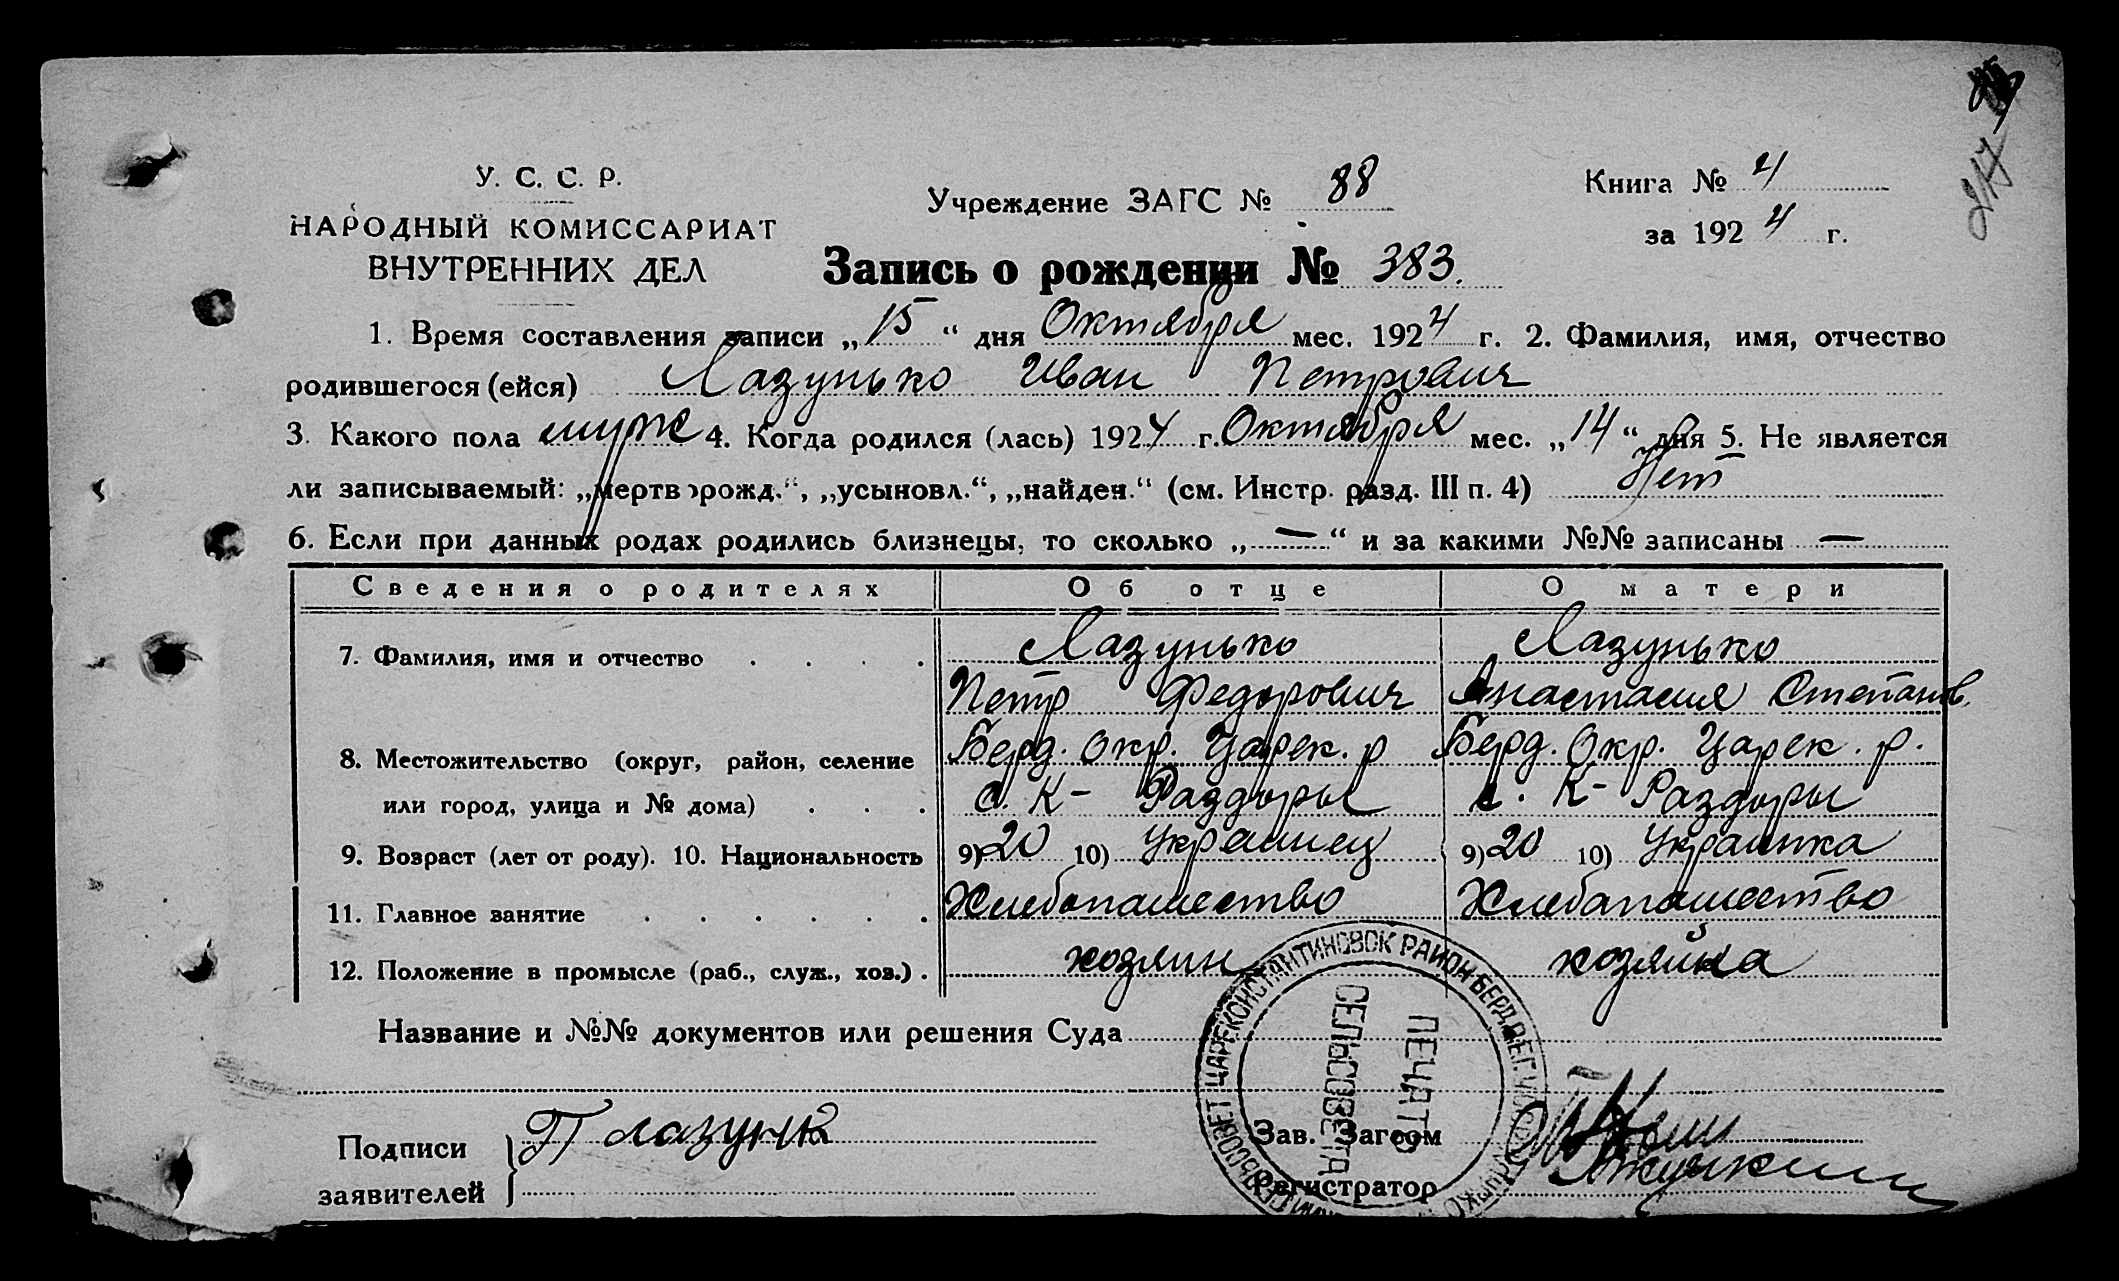 У. С. С. Р.
НАРОДНЫЙ КОМИССАРИАТ
ВНУТРЕННИХ ДЕЛ
Учреждение ЗАГС № 88
Книга № 4
за 1924 г.
Запись о рождении № 383.
1. Время составления записи „15“ дня Октября мес. 1924 г. 2. Фамилия, имя, отчество
родившегося (ейся) Лазунько Иван Петрович
3. Какого пола муж 4. Когда родился (лась) 1924 г. Октября мес. „14“ дня 5. Не является
ли записываемый: „мертворожд.“, „усыновл.“, „найден.“ (см. Инстр. разд. III п. 4) Нет
6. Если при данных родах родились близнецы, то сколько „—“ и за какими №№ записаны —
Сведения о родителях Об отце О матери
7. Фамилия, имя и отчество . . . . Лазунько Лазунько
Петр Федорович Анастасия Степанов.
8. Местожительство (округ, район, селение Берд. Окр. Царек. р Берд. Окр. Царек. р.
или город, улица и № дома) . . . с. К- Раздоры с. К- Раздоры
9. Возраст (лет от роду). 10. Национальность 9) 20 10) Украинец 9) 20 10) Украинка
11. Главное занятие . . . . . . Хлебопашество Хлебапашество
12. Положение в промысле (раб., служ., хоз.) . хозяин хозяйка
Название и №№ документов или решения Суда
Подписи
заявителей
П Лазунко
Зав. Загсом
Регистратор
СЕЛЬСОВЕТ ЦАРЕКОНСТАНТИНОВСК РАЙОН БЕРД.
ПЕЧАТЬ
СЕЛЬСОВЕТА